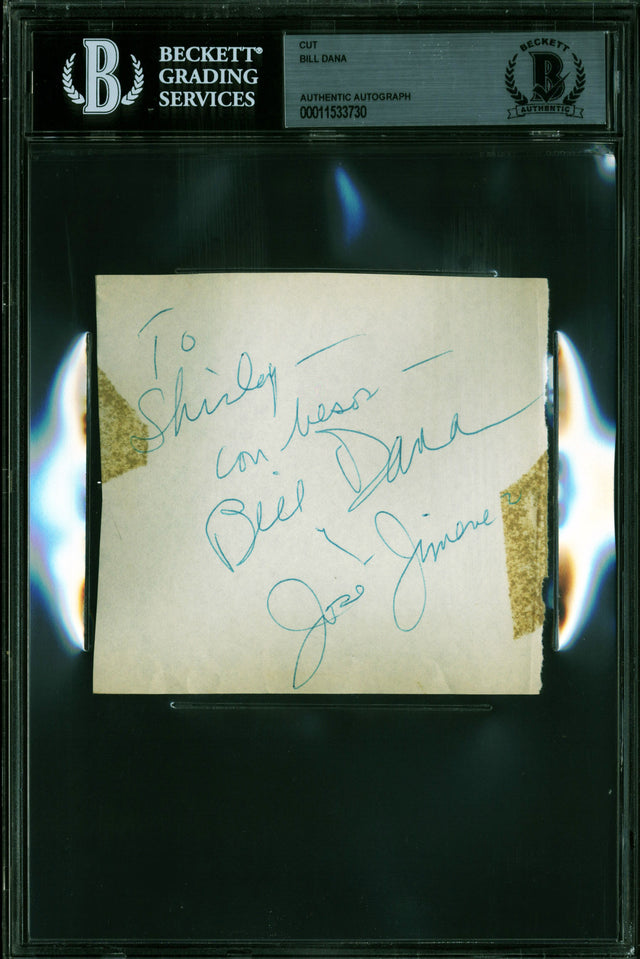 BECKETT®
GRADING
SERVICES
CUT
BILL DANA
AUTHENTIC AUTOGRAPH
00011533730
BECKETT
B
AUTHENTIC
B
To
Shirley —
con besos —
Bill Dana
y
Jose Jimenez